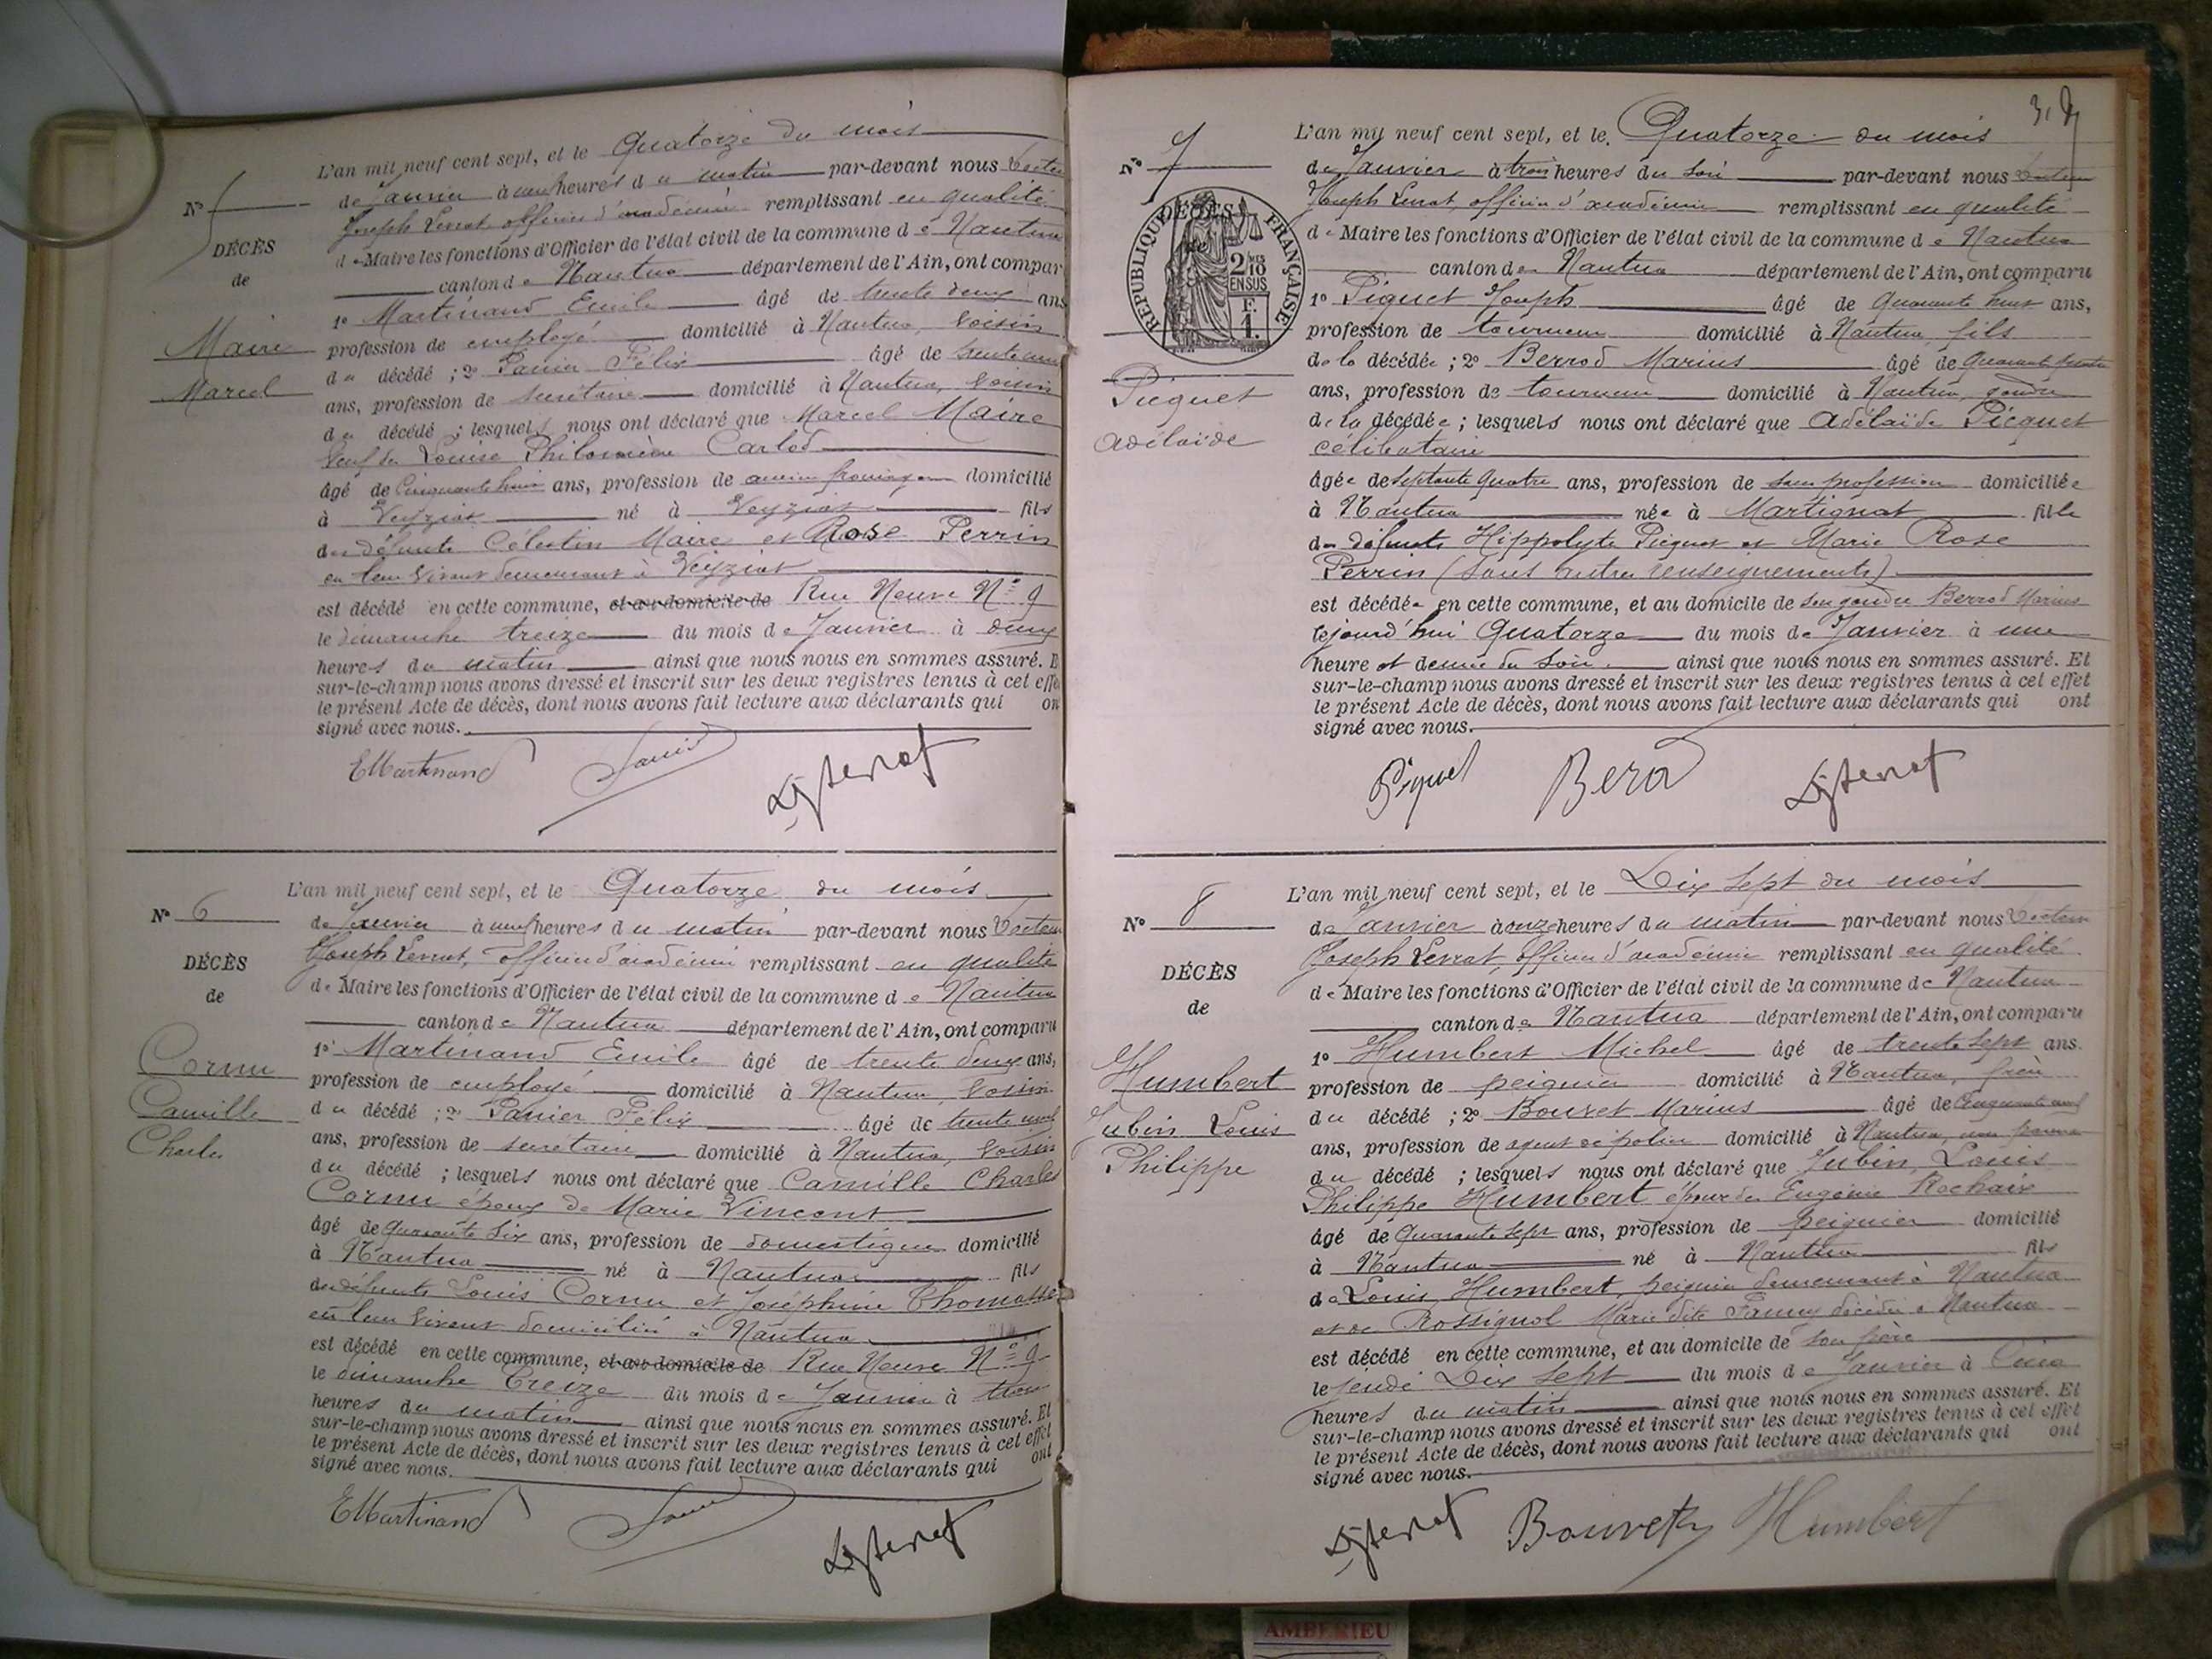 L'an mil neuf cent sept, et le Quatorze du mois
de Janvier à neuf heures du matin par-devant nous
Joseph officier d'académie remplissant en qualité
de Maire les fonctions d'Officier de l'état civil de la commune de Nantua
canton de Nantua département de l'Ain, ont compar
1º Martinand Emile âgé de trente deux ans
profession de employé domicilié à Nantua, voisin
du décédé ; 2º Panier Félix âgé de trente neuf
ans, profession de secrétaire domicilié à Nantua, voisin
du décédé ; lesquels nous ont déclaré que Marcel Maire
veuf de Louise Philomène Carlod
âgé de Cinquante huit ans, profession de ancien domicilié
à Veyziat né à Veyziat fils
des défunts Célestin Maire et Rose Perrin
en leur vivant demeurant à Veyziat
est décédé en cette commune, et au domicile de Rue Neuve Nº 9
le dimanche treize du mois de Janvier à deux
heures du matin ainsi que nous nous en sommes assuré. E
sur-le-champ nous avons dressé et inscrit sur les deux registres tenus à cet effe
le présent Acte de décès, dont nous avons fait lecture aux déclarants qui on
signé avec nous.
Nº 5
DÉCÈS
de
Maire
Marcel
EMartinand
L'an mil neuf cent sept, et le Quatorze du mois
de Janvier à neuf heures du matin par-devant nous
Joseph officier d'académie remplissant en qualité
de Maire les fonctions d'Officier de l'état civil de la commune de Nantua
canton de Nantua département de l'Ain, ont comparu
1º Martinand Emile âgé de trente deux ans,
profession de employé domicilié à Nantua, voisin
du décédé ; 2º Panier Félix âgé de trente neuf
ans, profession de secrétaire domicilié à Nantua, voisin
du décédé ; lesquels nous ont déclaré que Camille Charles
Cornu époux de Marie Vincent
âgé de quarante six ans, profession de domestique domicilié
à Nantua né à Nantua fils
des défunts Louis Cornu et Joséphine Thomasset
en leur vivant domiciliés à Nantua
est décédé en cette commune, et au domicile de Rue Neuve Nº 9
le dimanche Treize du mois de Janvier à trois
heures du matin ainsi que nous nous en sommes assuré. Et
sur-le-champ nous avons dressé et inscrit sur les deux registres tenus à cet effet
le présent Acte de décès, dont nous avons fait lecture aux déclarants qui ont
signé avec nous.
Nº 6
DÉCÈS
de
Cornu
Camille
Charles
EMartinand
L'an mil neuf cent sept, et le Quatorze du mois
de Janvier à trois heures du soir par-devant nous
Joseph officier d'académie remplissant en qualité
de Maire les fonctions d'Officier de l'état civil de la commune de Nantua
canton de Nantua département de l'Ain, ont comparu
1º Piquet Joseph âgé de quarante huit ans,
profession de tourneur domicilié à Nantua, fils
de la décédée ; 2º Berrod Marius âgé de quarante
ans, profession de tourneur domicilié à Nantua, gendre
de la décédée ; lesquels nous ont déclaré que Adélaïde Picquet
célibataire
âgée de septante quatre ans, profession de sans profession domiciliée
à Nantua née à Martignat fille
des défunts Hippolyte Picquet et Marie Rose
Perrin (sans autres renseignements)
est décédée en cette commune, et au domicile de son gendre Berrod Marius
le jourd'hui Quatorze du mois de Janvier à une
heure et demie du soir ainsi que nous nous en sommes assuré. Et
sur-le-champ nous avons dressé et inscrit sur les deux registres tenus à cet effet
le présent Acte de décès, dont nous avons fait lecture aux déclarants qui ont
signé avec nous.
Nº 7
DÉCÈS
RÉPUBLIQUE FRANÇAISE
2/10
EN SUS
F.
1.
Picquet
Adélaïde
Piquet Berod
L'an mil neuf cent sept, et le Dix sept du mois
de Janvier à onze heures du matin par-devant nous
Joseph officier d'académie remplissant en qualité
de Maire les fonctions d'Officier de l'état civil de la commune de Nantua
canton de Nantua département de l'Ain, ont comparu
1º Humbert Michel âgé de trente sept ans.
profession de peignier domicilié à Nantua, frère
du décédé ; 2º Bouvet Marius âgé de Cinquante neuf
ans, profession de agent de police domicilié à Nantua, non parent
du décédé ; lesquels nous ont déclaré que Jubin, Louis
Philippe Humbert époux de Eugénie Rochaix
âgé de quarante sept ans, profession de peignier domicilié
à Nantua né à Nantua fils
de Louis Humbert, peignier demeurant à Nantua
et de Rossignol Marie dite Fanny décédée à Nantua
est décédé en cette commune, et au domicile de son père
le jeudi Dix sept du mois de Janvier à Cinq
heures du matin ainsi que nous nous en sommes assuré. Et
sur-le-champ nous avons dressé et inscrit sur les deux registres tenus à cet effet
le présent Acte de décès, dont nous avons fait lecture aux déclarants qui ont
signé avec nous.
Nº 8
DÉCÈS
de
Humbert
Jubin Louis
Philippe
Bouvet Humbert
AMBERIEU